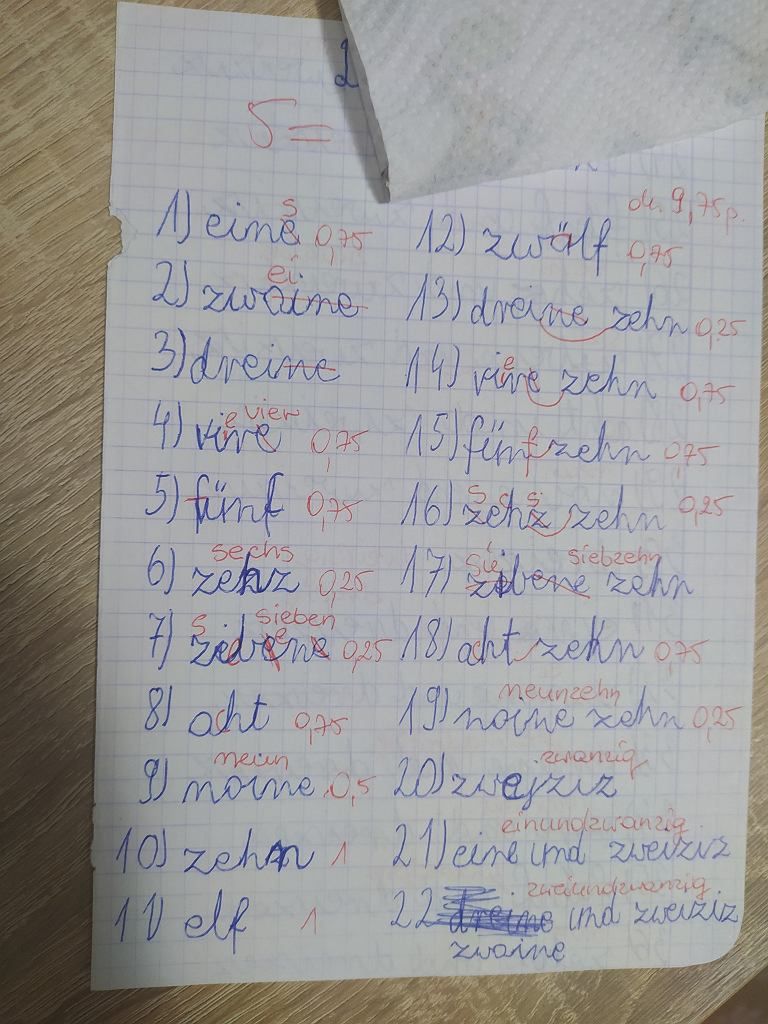 5=
dk. 9,75p.
1) eine s 0,75
2) zwaine ei
3) dreine
4) vire e vier 0,75
5) fümf 0,75
6) zehz sechs 0,25
7) zidene s sieben 0,25
8) acht 0,75
9) noine neun 0,5
10) zehn 1
11) elf 1
12) zwölf 0,75
13) dreine zehn 0,25
14) vire e zehn 0,75
15) fümf zehn 0,75
16) zehz s c s zehn 0,25
17) zibene sie siebzehn zehn
18) acht zehn 0,75
19) noine zehn neunzehn 0,25
20) zwejziz zwanzig
21) eine und zweiziz einundzwanzig
22 dreine und zweiziz zweiundzwanzig
zwaine